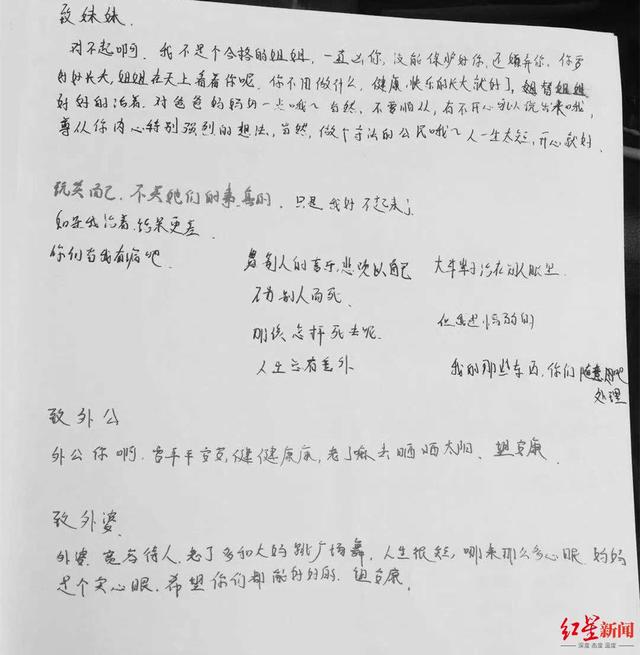 致妹妹.
对不起啊. 我不是个合格的姐姐, 一直凶你, 没能保护好你, 还嫌弃你. 你要
好好长大, 姐姐在天上看着你呢. 你不用做什么, 健康、快乐的长大就好了, 姐
好好的活着. 对爸爸妈妈好一点哦~ 当然, 不要顺从, 有不开心就说出来哦,
尊从你内心特别强烈的想法, 当然, 做个守法的公民哦~ 人一生太短, 开心就好.
玩笑而已, 不关她们的事, 真的, 只是我好不起来了.
如果我活着, 结果更差
你们当我有病吧
别人的喜乐, 悲欢以自己 大半辈子活在别人眼里.
不为别人而死. 但
明天 怎样死去呢.
人生 有意外 我的那些东西, 你们随意
处理
致外公
外公你啊. 要平平安安, 健健康康, 老了嘛去晒晒太阳、 安康.
致外婆.
外婆. 宽容待人, 老了多和大妈跳广场舞, 人生很短, 哪来那么多心眼. 妈妈
是个实心眼. 希望你们都能好好的. 安康.
红星新闻
深度 态度 温度